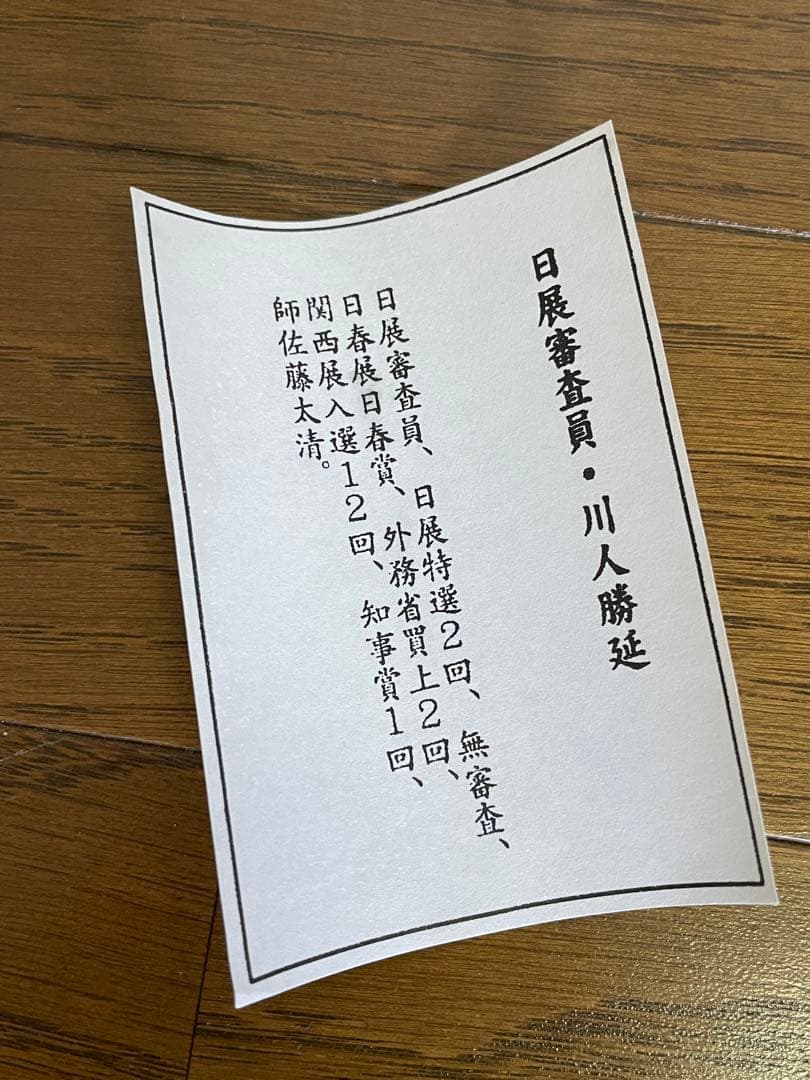 日展審査員・川人勝延
日展審査員、日展特選２回、無審査、
日春展日春賞、外務省買上２回、
関西展入選１２回、知事賞１回、
師佐藤太清。